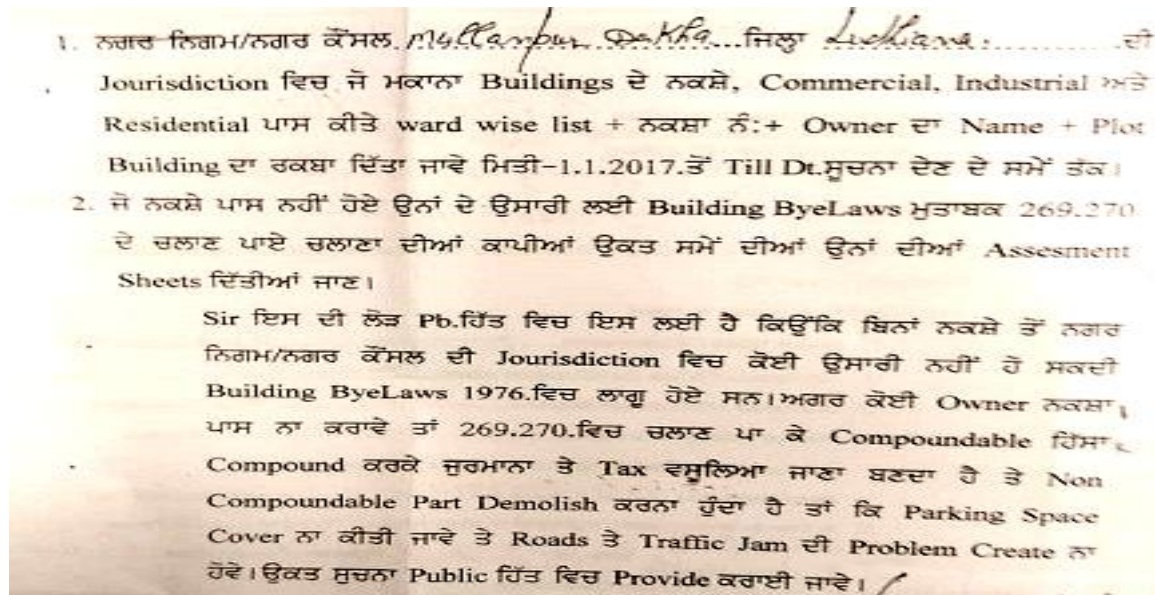 1. ਨਗਰ ਨਿਗਮ/ਨਗਰ ਕੌਂਸਲ. Mullanpur Dakha...ਜਿਲ੍ਹਾ Ludhiana............ਦੀ
Jourisdiction ਵਿਚ ਜੋ ਮਕਾਨਾ Buildings ਦੇ ਨਕਸ਼ੇ, Commercial, Industrial ਅਤੇ
Residential ਪਾਸ ਕੀਤੇ ward wise list + ਨਕਸ਼ਾ ਨੰ:+ Owner ਦਾ Name + Plot
Building ਦਾ ਰਕਬਾ ਦਿੱਤਾ ਜਾਵੇ ਮਿਤੀ-1.1.2017.ਤੋਂ Till Dt.ਸੂਚਨਾ ਦੇਣ ਦੇ ਸਮੇਂ ਤੱਕ।
2. ਜੋ ਨਕਸ਼ੇ ਪਾਸ ਨਹੀਂ ਹੋਏ ਉਨਾਂ ਦੇ ਉਸਾਰੀ ਲਈ Building ByeLaws ਮੁਤਾਬਕ 269.270
ਦੇ ਚਲਾਣ ਪਾਏ ਚਲਾਣਾ ਦੀਆਂ ਕਾਪੀਆਂ ਉਕਤ ਸਮੇਂ ਦੀਆਂ ਉਨਾਂ ਦੀਆਂ Assesment
Sheets ਦਿੱਤੀਆਂ ਜਾਣ।
Sir ਇਸ ਦੀ ਲੋੜ Pb.ਹਿੱਤ ਵਿਚ ਇਸ ਲਈ ਹੈ ਕਿਉਂਕਿ ਬਿਨਾਂ ਨਕਸ਼ੇ ਤੋਂ ਨਗਰ
ਨਿਗਮ/ਨਗਰ ਕੌਂਸਲ ਦੀ Jourisdiction ਵਿਚ ਕੋਈ ਉਸਾਰੀ ਨਹੀਂ ਹੋ ਸਕਦੀ
Building ByeLaws 1976.ਵਿਚ ਲਾਗੂ ਹੋਏ ਸਨ।ਅਗਰ ਕੋਈ Owner ਨਕਸ਼ਾ
ਪਾਸ ਨਾ ਕਰਾਵੇ ਤਾਂ 269.270.ਵਿਚ ਚਲਾਣ ਪਾ ਕੇ Compoundable ਹਿੱਸਾ
Compound ਕਰਕੇ ਜੁਰਮਾਨਾ ਤੇ Tax ਵਸੂਲਿਆ ਜਾਣਾ ਬਣਦਾ ਹੈ ਤੇ Non
Compoundable Part Demolish ਕਰਨਾ ਹੁੰਦਾ ਹੈ ਤਾਂ ਕਿ Parking Space
Cover ਨਾ ਕੀਤੀ ਜਾਵੇ ਤੇ Roads ਤੇ Traffic Jam ਦੀ Problem Create ਨਾ
ਹੋਵੇ।ਉਕਤ ਸੁਚਨਾ Public ਹਿੱਤ ਵਿਚ Provide ਕਰਾਈ ਜਾਵੇ।